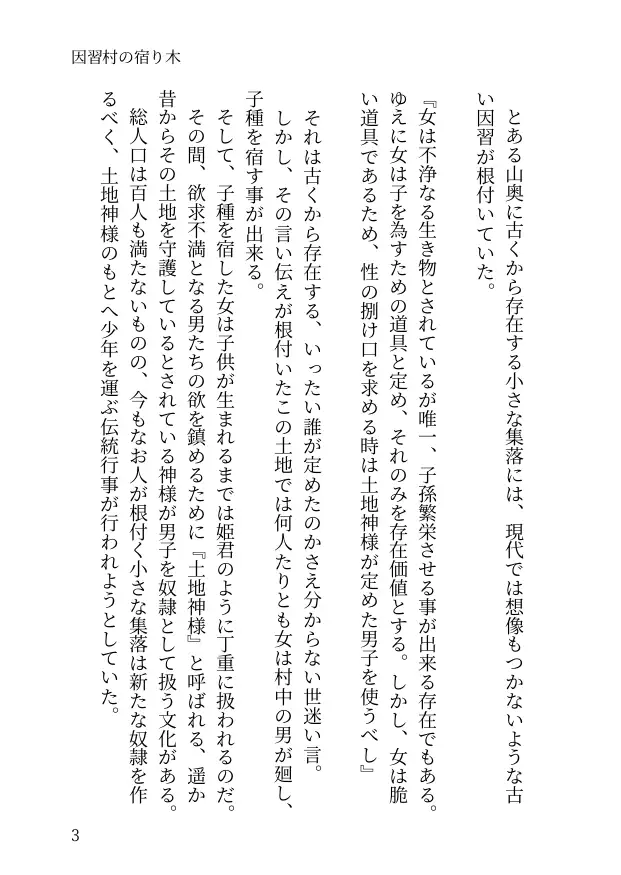 因習村の宿り木
とある山奥に古くから存在する小さな集落には、現代では想像もつかないような古
い因習が根付いていた。
『女は不浄なる生き物とされているが唯一、子孫繁栄させる事が出来る存在でもある。
ゆえに女は子を為すための道具と定め、それのみを存在価値とする。しかし、女は脆
い道具であるため、性の捌け口を求める時は土地神様が定めた男子を使うべし』
それは古くから存在する、いったい誰が定めたのかさえ分からない世迷い言。
しかし、その言い伝えが根付いたこの土地では何人たりとも女は村中の男が廻し、
子種を宿す事が出来る。
そして、子種を宿した女は子供が生まれるまでは姫君のように丁重に扱われるのだ。
その間、欲求不満となる男たちの欲を鎮めるために『土地神様』と呼ばれる、遥か
昔からその土地を守護しているとされている神様が男子を奴隷として扱う文化がある。
総人口は百人も満たないものの、今もなお人が根付く小さな集落は新たな奴隷を作
るべく、土地神様のもとへ少年を運ぶ伝統行事が行われようとしていた。
3